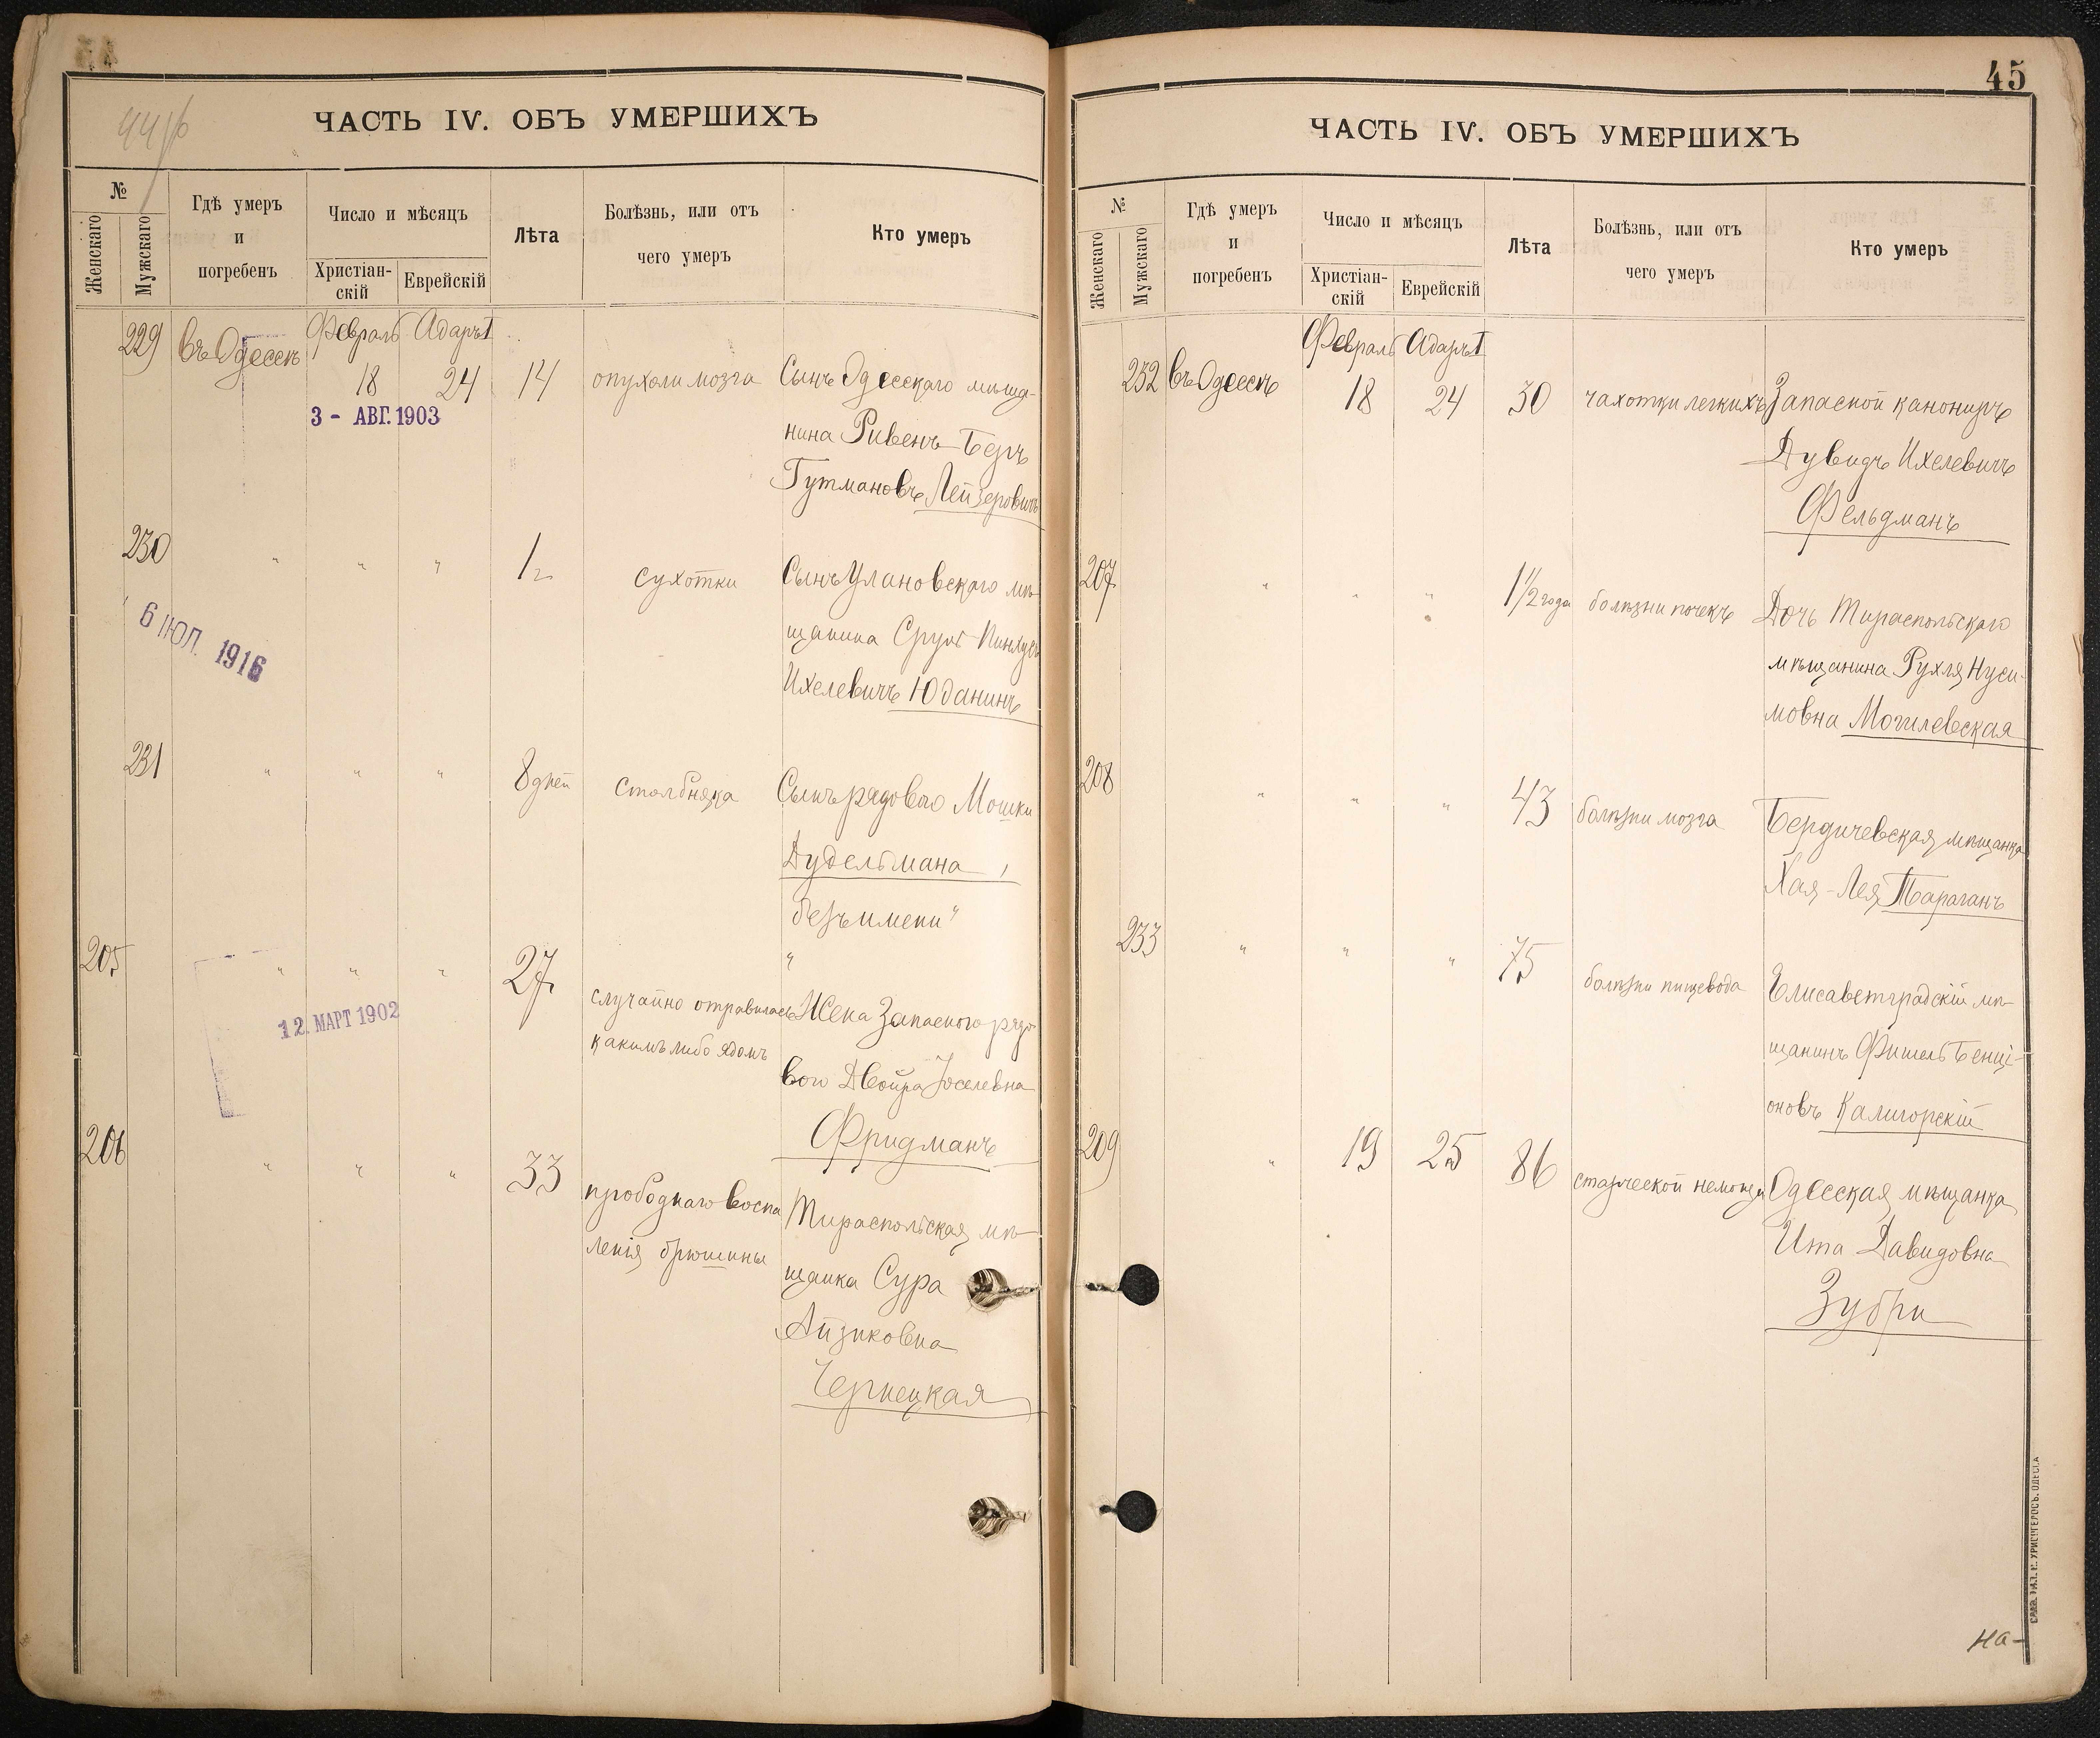 44 об
ЧАСТЬ IV. ОБЪ УМЕРШИХЪ
№
Женскаго
Мужскаго
Гдѣ умеръ
и
погребенъ
Число и мѣсяцъ
Христіан-
скій
Еврейскій
Лѣта
Болѣзнь, или отъ
чего умеръ
Кто умеръ
229 въ Одессѣ Февраль Адаръ I
18 24 14 опухоли мозга Сынъ Одесскаго мѣща-
3 - АВГ. 1903
нина Рувенъ-Беръ
Гутмановъ Лейзеровичъ
230 " " " 1 г. сухотки Сынъ Улановскаго мѣ-
6 ІЮЛ. 1916
щанина Сруль-Пинхусъ
Ихелевичъ Юданинъ
231 " " " 8 дней столбняка Сынъ рядового Мошки
Дудельмана,
"безъ имени"
205 " " " 27 случайно отравилась Жена Запасного рядо-
12. МАРТ 1902
какимъ либо ядомъ
вого Двойра Іоселевна
Фридманъ
206 " " " 33 прободнаго воспа
ленія брюшины
Тираспольская мѣ-
щанка Сура
Айзиковна
Чернецкая
45
ЧАСТЬ IV. ОБЪ УМЕРШИХЪ
№
Женскаго
Мужскаго
Гдѣ умеръ
и
погребенъ
Число и мѣсяцъ
Христіан-
скій
Еврейскій
Лѣта
Болѣзнь, или отъ
чего умеръ
Кто умеръ
232 въ Одессѣ Февраль Адаръ I
18 24 30 чахотки легкихъ Запасной канониръ
Дувидъ Ихелевичъ
Фельдманъ
207 " " " 1 1/2 года болѣзни почекъ Дочь Тираспольскаго
мѣщанина Рухля Нуси-
мовна Могилевская
208 " " " 43 болѣзни мозга Бердичевская мѣщанка
Хая-Лея Тараганъ
233 " " " 75 болѣзни пищевода Елисаветградскій мѣ-
щанинъ Фишель Бенці-
оновъ Калигорскій
209 " 19 25 86 старческой немощи Одесская мѣщанка
Ита Давидовна
Зубри
На-